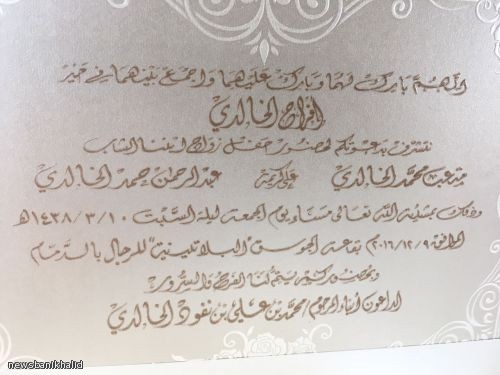 اللهم بارك لهما وبارك عليهما واجمع بينهما في خير
افراح الخالدي
نتشرف بدعوتكم لحضور حفل زواج ابننا الشاب
متعب محمد الخالدي على كريمة عبدالرحمن حمد الخالدي
وذلك بمشيئة الله تعالى مساء يوم الجمعة ليلة السبت ١٤٣٨/٣/١٠هـ
الموافق ٢٠١٦/١٢/٩م بقاعة الجوسق "البلاتينية" للرجال بالدمام
وبحضوركم يتم لنا الفرح والسرور
الداعون أبناء المرحوم/محمد بن علي بن نفود الخالدي
newsbanikhalid